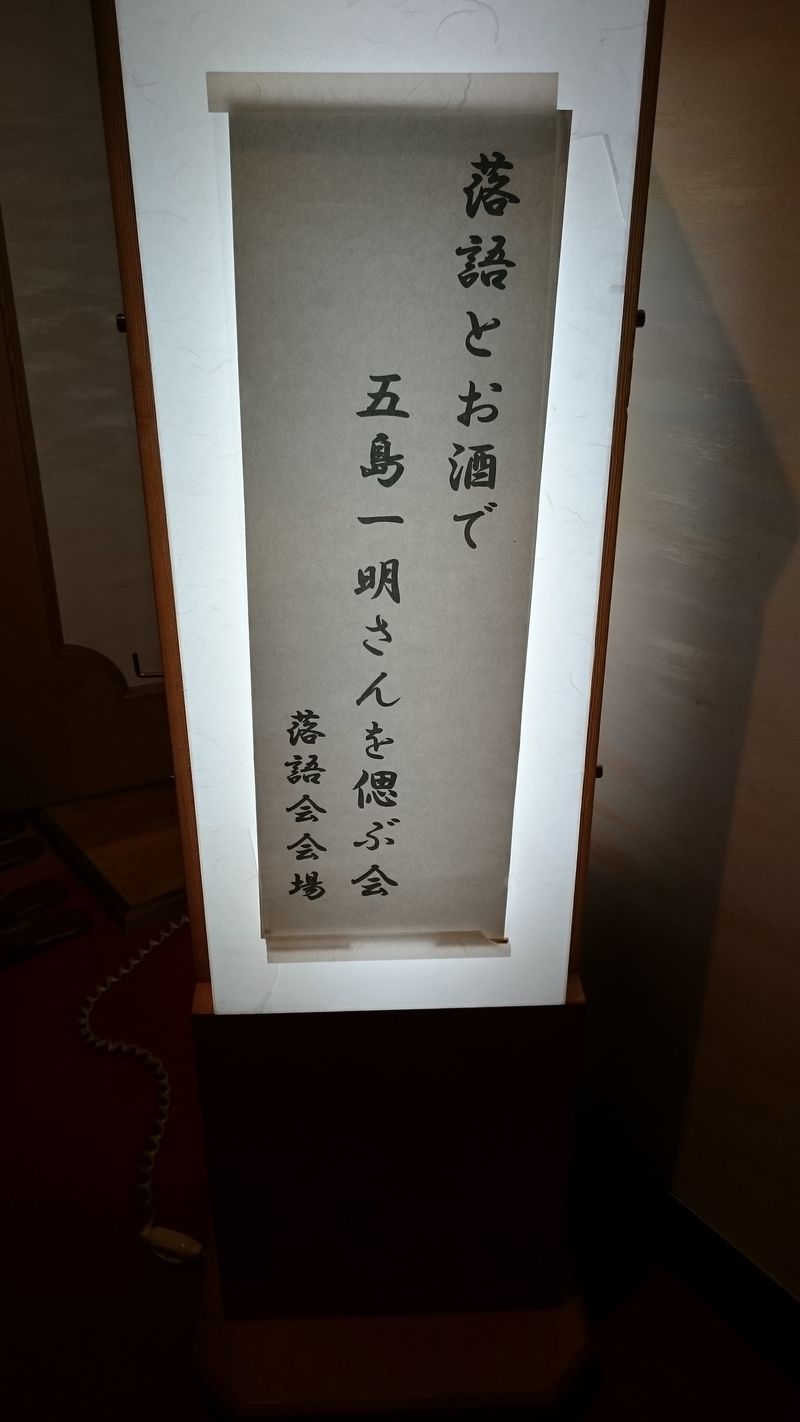 落語とお酒で
五島一明さんを偲ぶ会
落語会会場